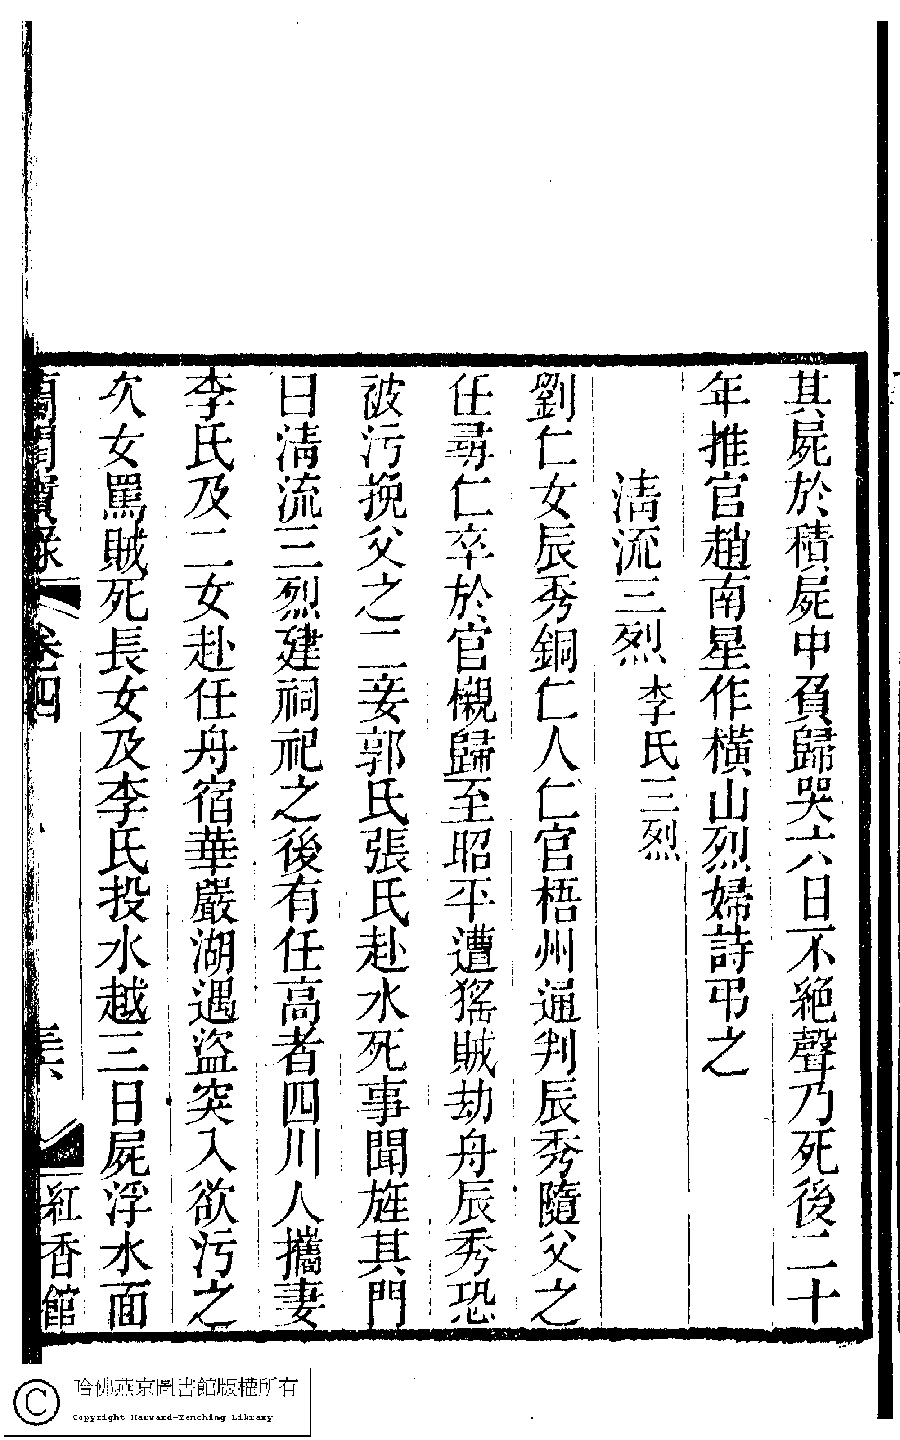 其屍於積屍中負歸哭六日不絕聲乃死後二十
年推官趙南星作橫山烈婦詩弔之
清流三烈 李氏三烈
劉仁女辰秀銅仁人仁官梧州通判辰秀隨父之
任尋仁卒於官櫬歸至昭平遭猺賊劫舟辰秀恐
被污挽父之二妾郭氏張氏赴水死事聞旌其門
曰清流三烈建祠祀之後有任高者四川人攜妻
李氏及二女赴任舟宿華嚴湖遇盜突入欲污之
次女罵賊死長女及李氏投水越三日屍浮水面
蘭閨寶錄 卷四 紅香館
哈佛燕京圖書館版權所有
Copyright Harvard-Yenching Library